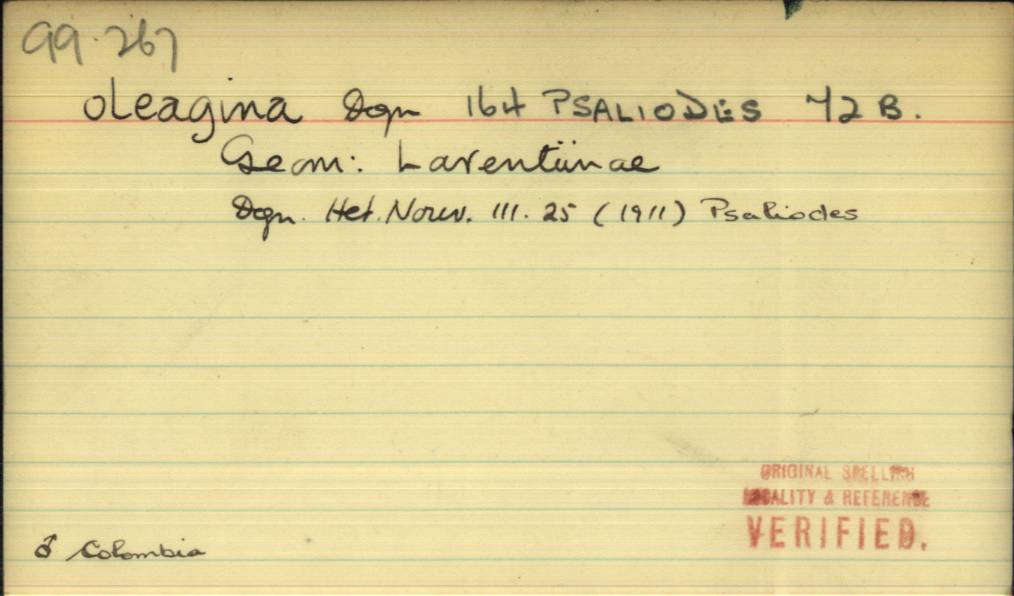 99.267
oleagina Dgn 164 PSALIODES 42 B.
Geom: Larentiinae
Dgn. Het. Nouv. III. 25 (1911) Psaliodes
ORIGINAL SPELLING
LOCALITY & REFERENCE
VERIFIED.
♂ Colombia